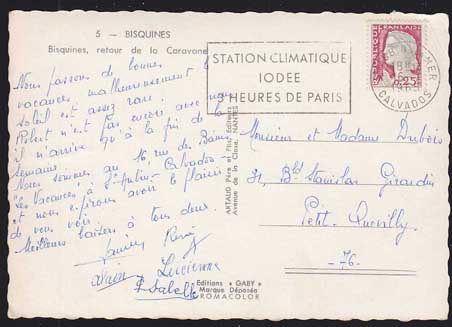 5 - BISQUINES
Bisquines, retour de la Caravane
STATION CLIMATIQUE
IODEE
3 HEURES DE PARIS
MER
CALVADOS
REPUBLIQUE FRANÇAISE
0,25
Nous passons de bonnes
vacances, malheureusement le
soleil est assez rare.
Robert n'est pas encore avec nous
il n'arrive qu'à la fin de la
semaine.
Nous sommes au 16, rue de Bains
"Les Vacances" à St Aubin - Calvados -
et nous espérons avoir le plaisir
de vous voir.
Meilleurs baisers à tous deux
René
Lucienne
Alain
Isabelle
ARTAUD Père et Fils, Editeurs
Avenue de la Close, NANTES
Monsieur et Madame Dubois
31, Bld Stanislas Girardin
Petit-Quevilly
-76-
Editions "GABY"
Marque Déposée
ROMACOLOR